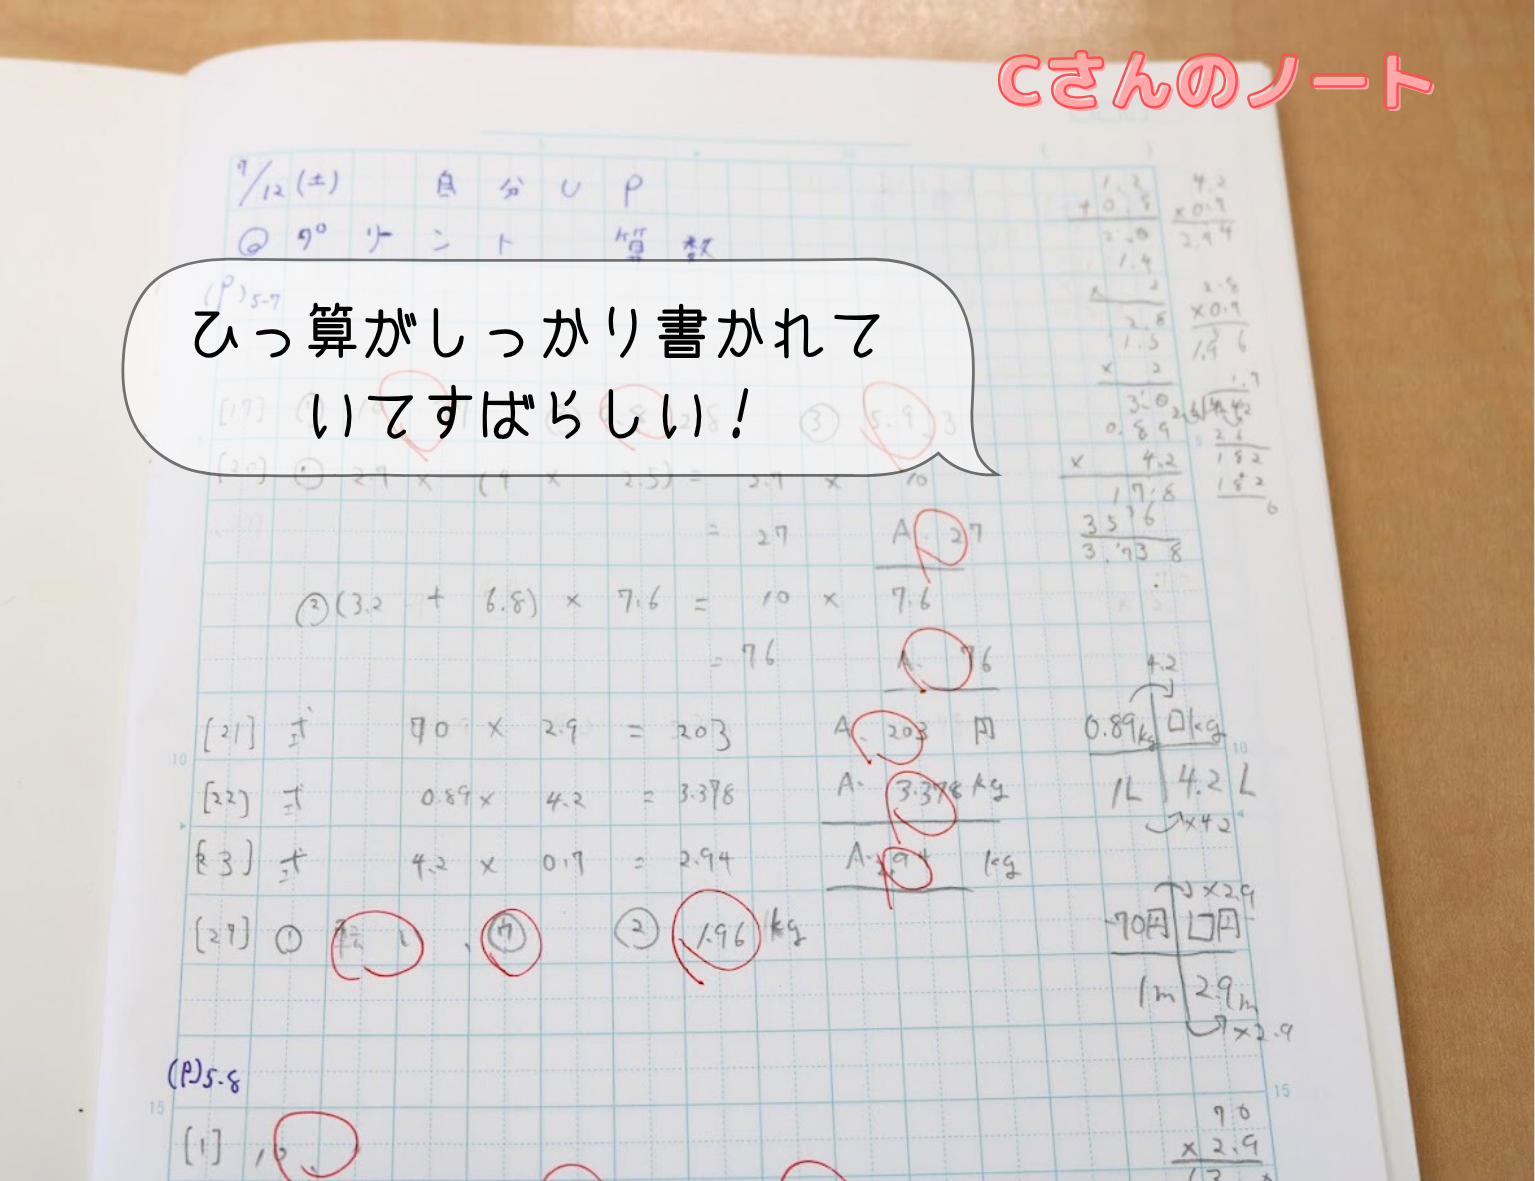 Cさんのノート
9/12(土) 自分UP
◎プリント 算数
(P)5-7
ひっ算がしっかり書かれて
いてすばらしい!
[17] ③ 5.9
[20] ① 2.7 × (4 × 2.5) = 2.7 × 10
= 27 A. 27
② (3.2 + 6.8) × 7.6 = 10 × 7.6
= 76 A. 76
[21] 式 70 × 2.9 = 203 A. 203 円
[22] 式 0.89 × 4.2 = 3.378 A. 3.378 kg
[23] 式 4.2 × 0.7 = 2.94 A. 2.94 kg
[27] ① ② 1.96 kg
(P)5-8
[1]
1.2
+ 0.8
2.0
1.4
× 2
2.8
1.5
× 2
3.0
0.89
× 4.2
178
356
3.738
4.2
2.94
4.2
0.89kg □kg
1L 4.2L
×4.2
×2.9
70円 □円
1m 2.9m
×2.9
70
× 2.9
10
15
10
15